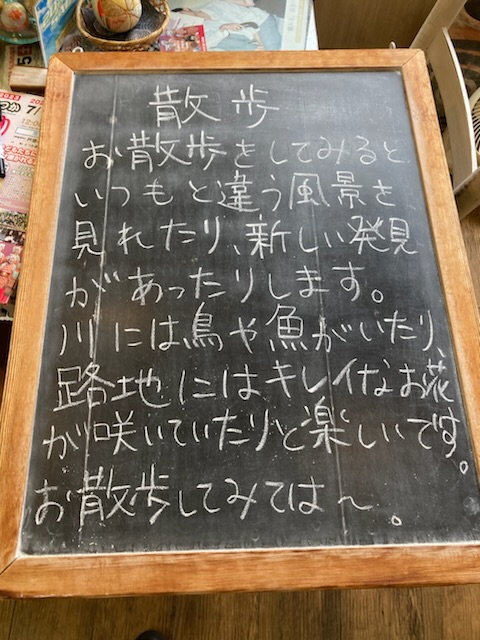 散歩
お散歩をしてみると
いつもと違う風景を
見れたり、新しい発見
があったりします。
川には鳥や魚がいたり、
路地にはキレイなお花
が咲いていたりと楽しいです。
お散歩してみては〜。